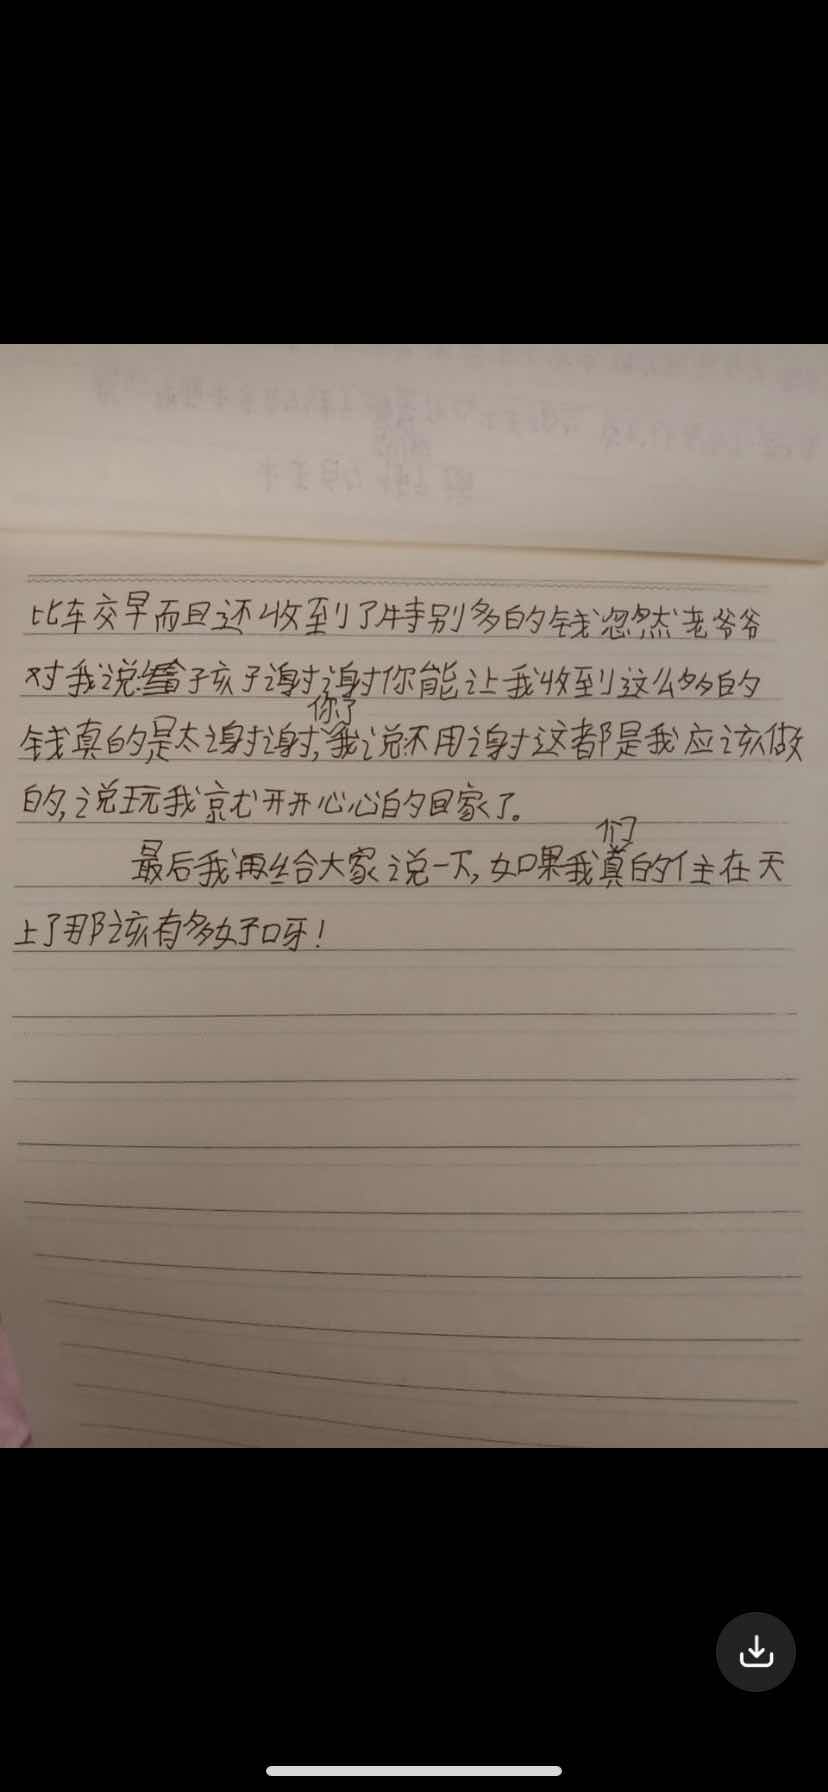 比较早而且还收到了特别多的钱忽然老爷爷
对我说孩子谢谢你能让我收到这么多的
钱真的是太谢谢你了,我说不用谢这都是我应该做
的,说玩我就开开心心的回家了。
最后我再给大家说一下,如果我们真的住在天
上了那该有多好呀!